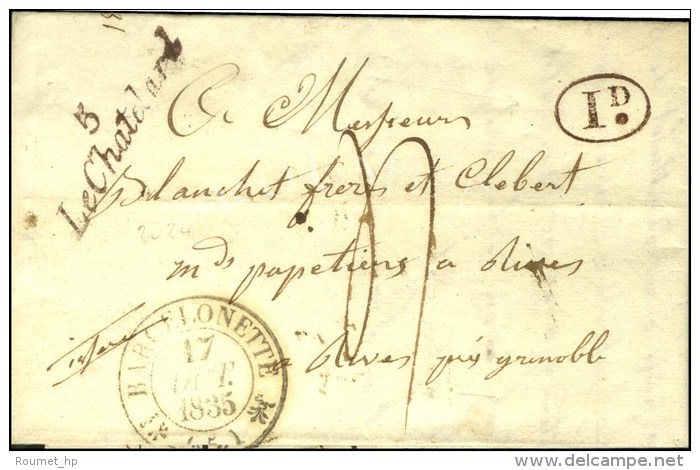 5
Le Chatelard
1D.
A Messieurs
Blanchet frers et Clebert
mds papetiers a Rives
a Rives près grenoble
isere
2024
BARCELONETTE
17
OCT.
1835
(5)
Roumet_hp
delcampe.net